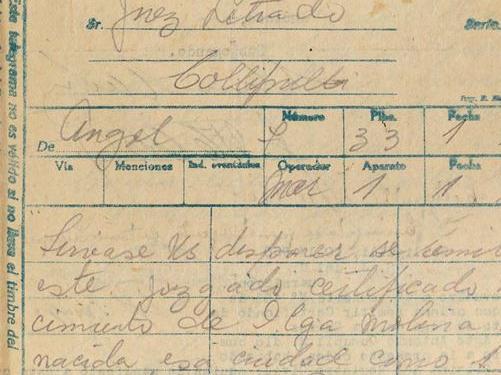 Sr. Juez Letrado Serie.
Collipulli
Número Plbs. Fecha
De Angol 7 33 1
Vía Menciones Ind. eventuales Operador Aparato Fecha
1 1
Sirvase Us disponer se remi
este juzgado certificado
cimiento de Olga Molina
nacida esa ciudad como 1
Este telegrama no es válido si no lleva el timbre del